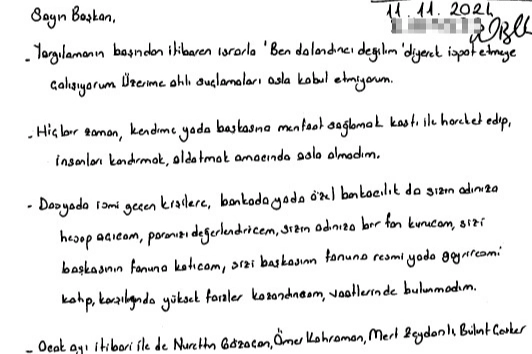 Sayın Başkan,
11.11.2024
- Yargılamanın başından itibaren ısrarla 'Ben dolandırıcı değilim' diyerek ispat etmeye
çalışıyorum Üzerime atılı suçlamaları asla kabul etmiyorum.
- Hiçbir zaman, kendime yada başkasına menfaat sağlamak kastı ile hareket edip,
insanları kandırmak, aldatmak amacında asla olmadım.
- Dosyada ismi geçen kişilere, bankada yada özel bankacılık da sizin adınıza
hesap açıcam, paranızı değerlendiricem, sizin adınıza bir fon kurucam, sizi
başkasının fonuna katıcam, sizi başkasının fonuna resmi yada gayriresmi
katıp, karşılığında yüksek faizler kazandırıcam, vaatlerinde bulunmadım.
- Ocak ayı itibari ile de Nurettin Ömer Kahraman, Mert Zeydanlı, Bülent